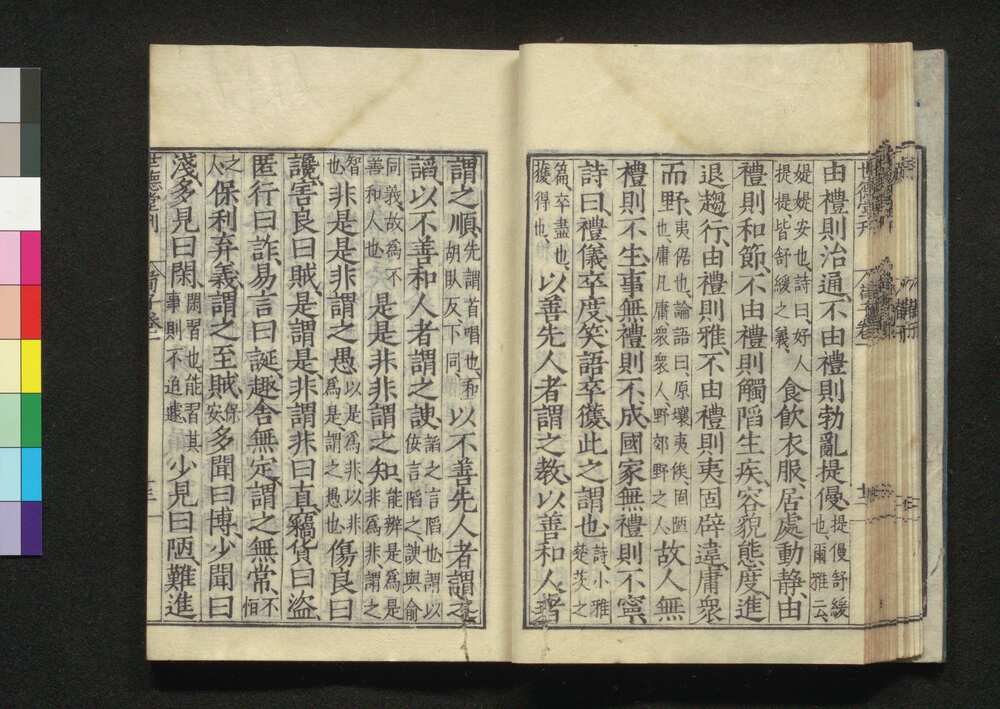 由禮則治通、不由禮則勃亂提僈、提僈舒緩也、爾雅云、
媞媞安也、詩曰好人提提、皆舒緩之義、食飲衣服、居處動靜、由
禮則和節、不由禮則觸陷生疾、容貌態度、進
退趨行、由禮則雅、不由禮則夷固僻違、庸衆
而野、夷倨也、論語曰、原壤夷俟、固陋也、庸凡庸衆衆人、野郊野之人、故人無
禮則不生、事無禮則不成、國家無禮則不寧、
詩曰、禮儀卒度、笑語卒獲、此之謂也、詩小雅楚茨之
篇、卒盡也、獲得也、以善先人者謂之教、以善和人者
謂之順、先謂首唱也、和胡臥反下同、以不善先人者謂之
諂以不善和人者謂之諛、諂之言陷也、謂以佞言陷之、諛與俞
同義、故爲不善和人也是是非非謂之知、能辨是爲是非爲非、謂之
智也、非是是非謂之愚、以是爲非、以非爲是謂之愚也、傷良曰
讒、害良曰賊、是謂是非謂非曰直、竊貨曰盜
匿行曰詐、易言曰誕、趣舍無定、謂之無常、不恒
之人、保利弃義、謂之至賊、保安多聞曰博、少聞曰
淺、多見曰閑、閑習也、能習其事則不迫遽、少見曰陋、難進
世德堂刊